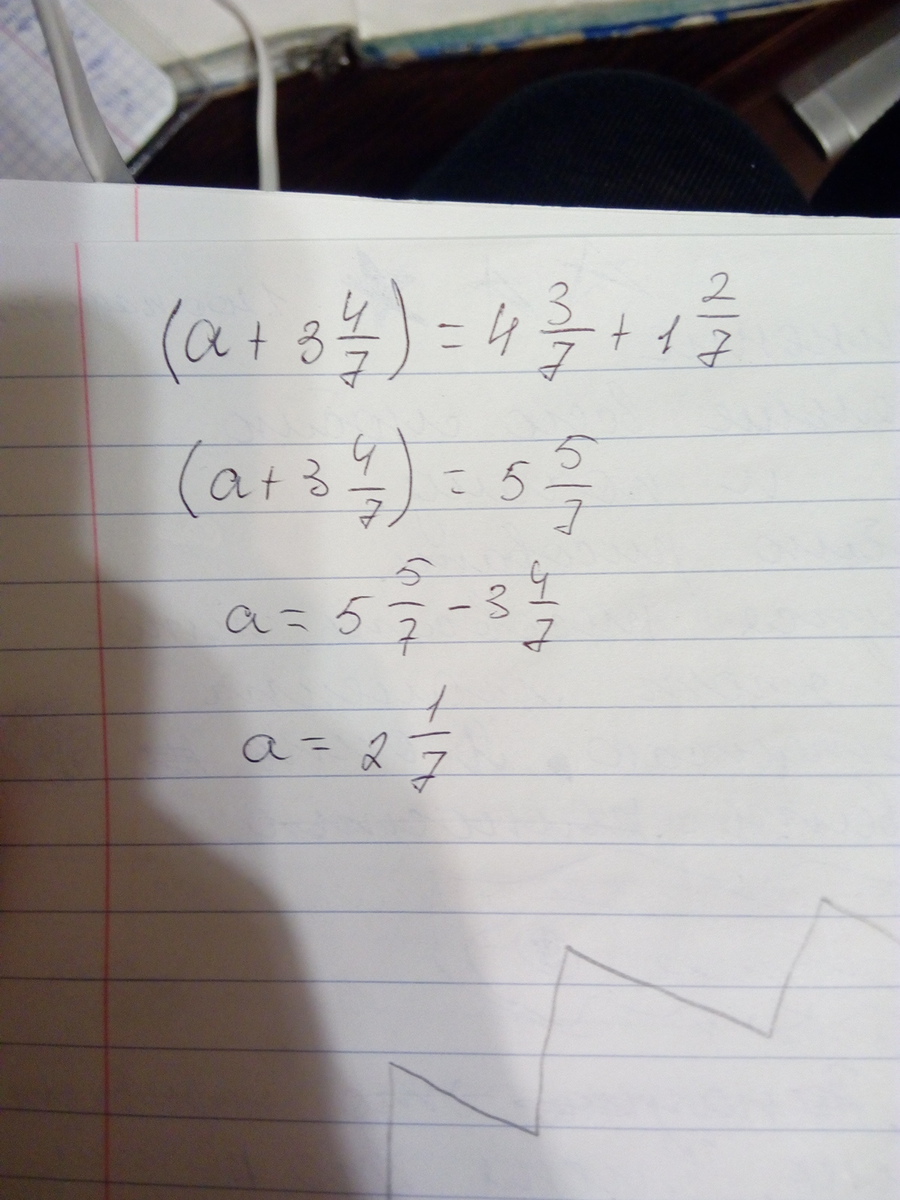 (a + 3 4/7) = 4 3/7 + 1 2/7
(a + 3 4/7) = 5 5/7
a = 5 5/7 - 3 4/7
a = 2 1/7